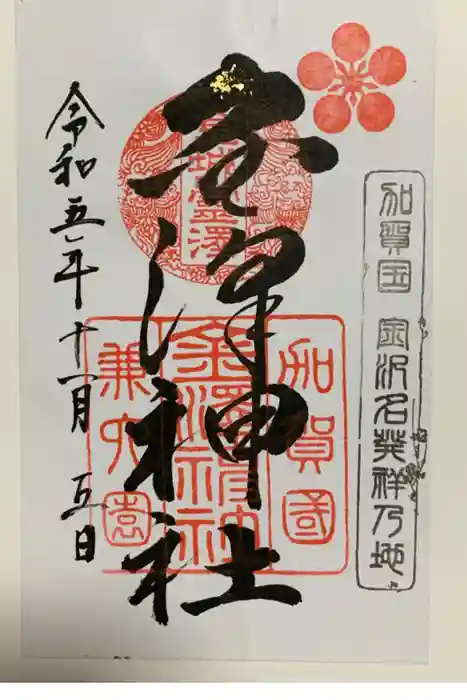 加賀国 金沢名発祥乃地
金澤神社
加賀國
金澤神社
兼六園
令和五年十一月 五日